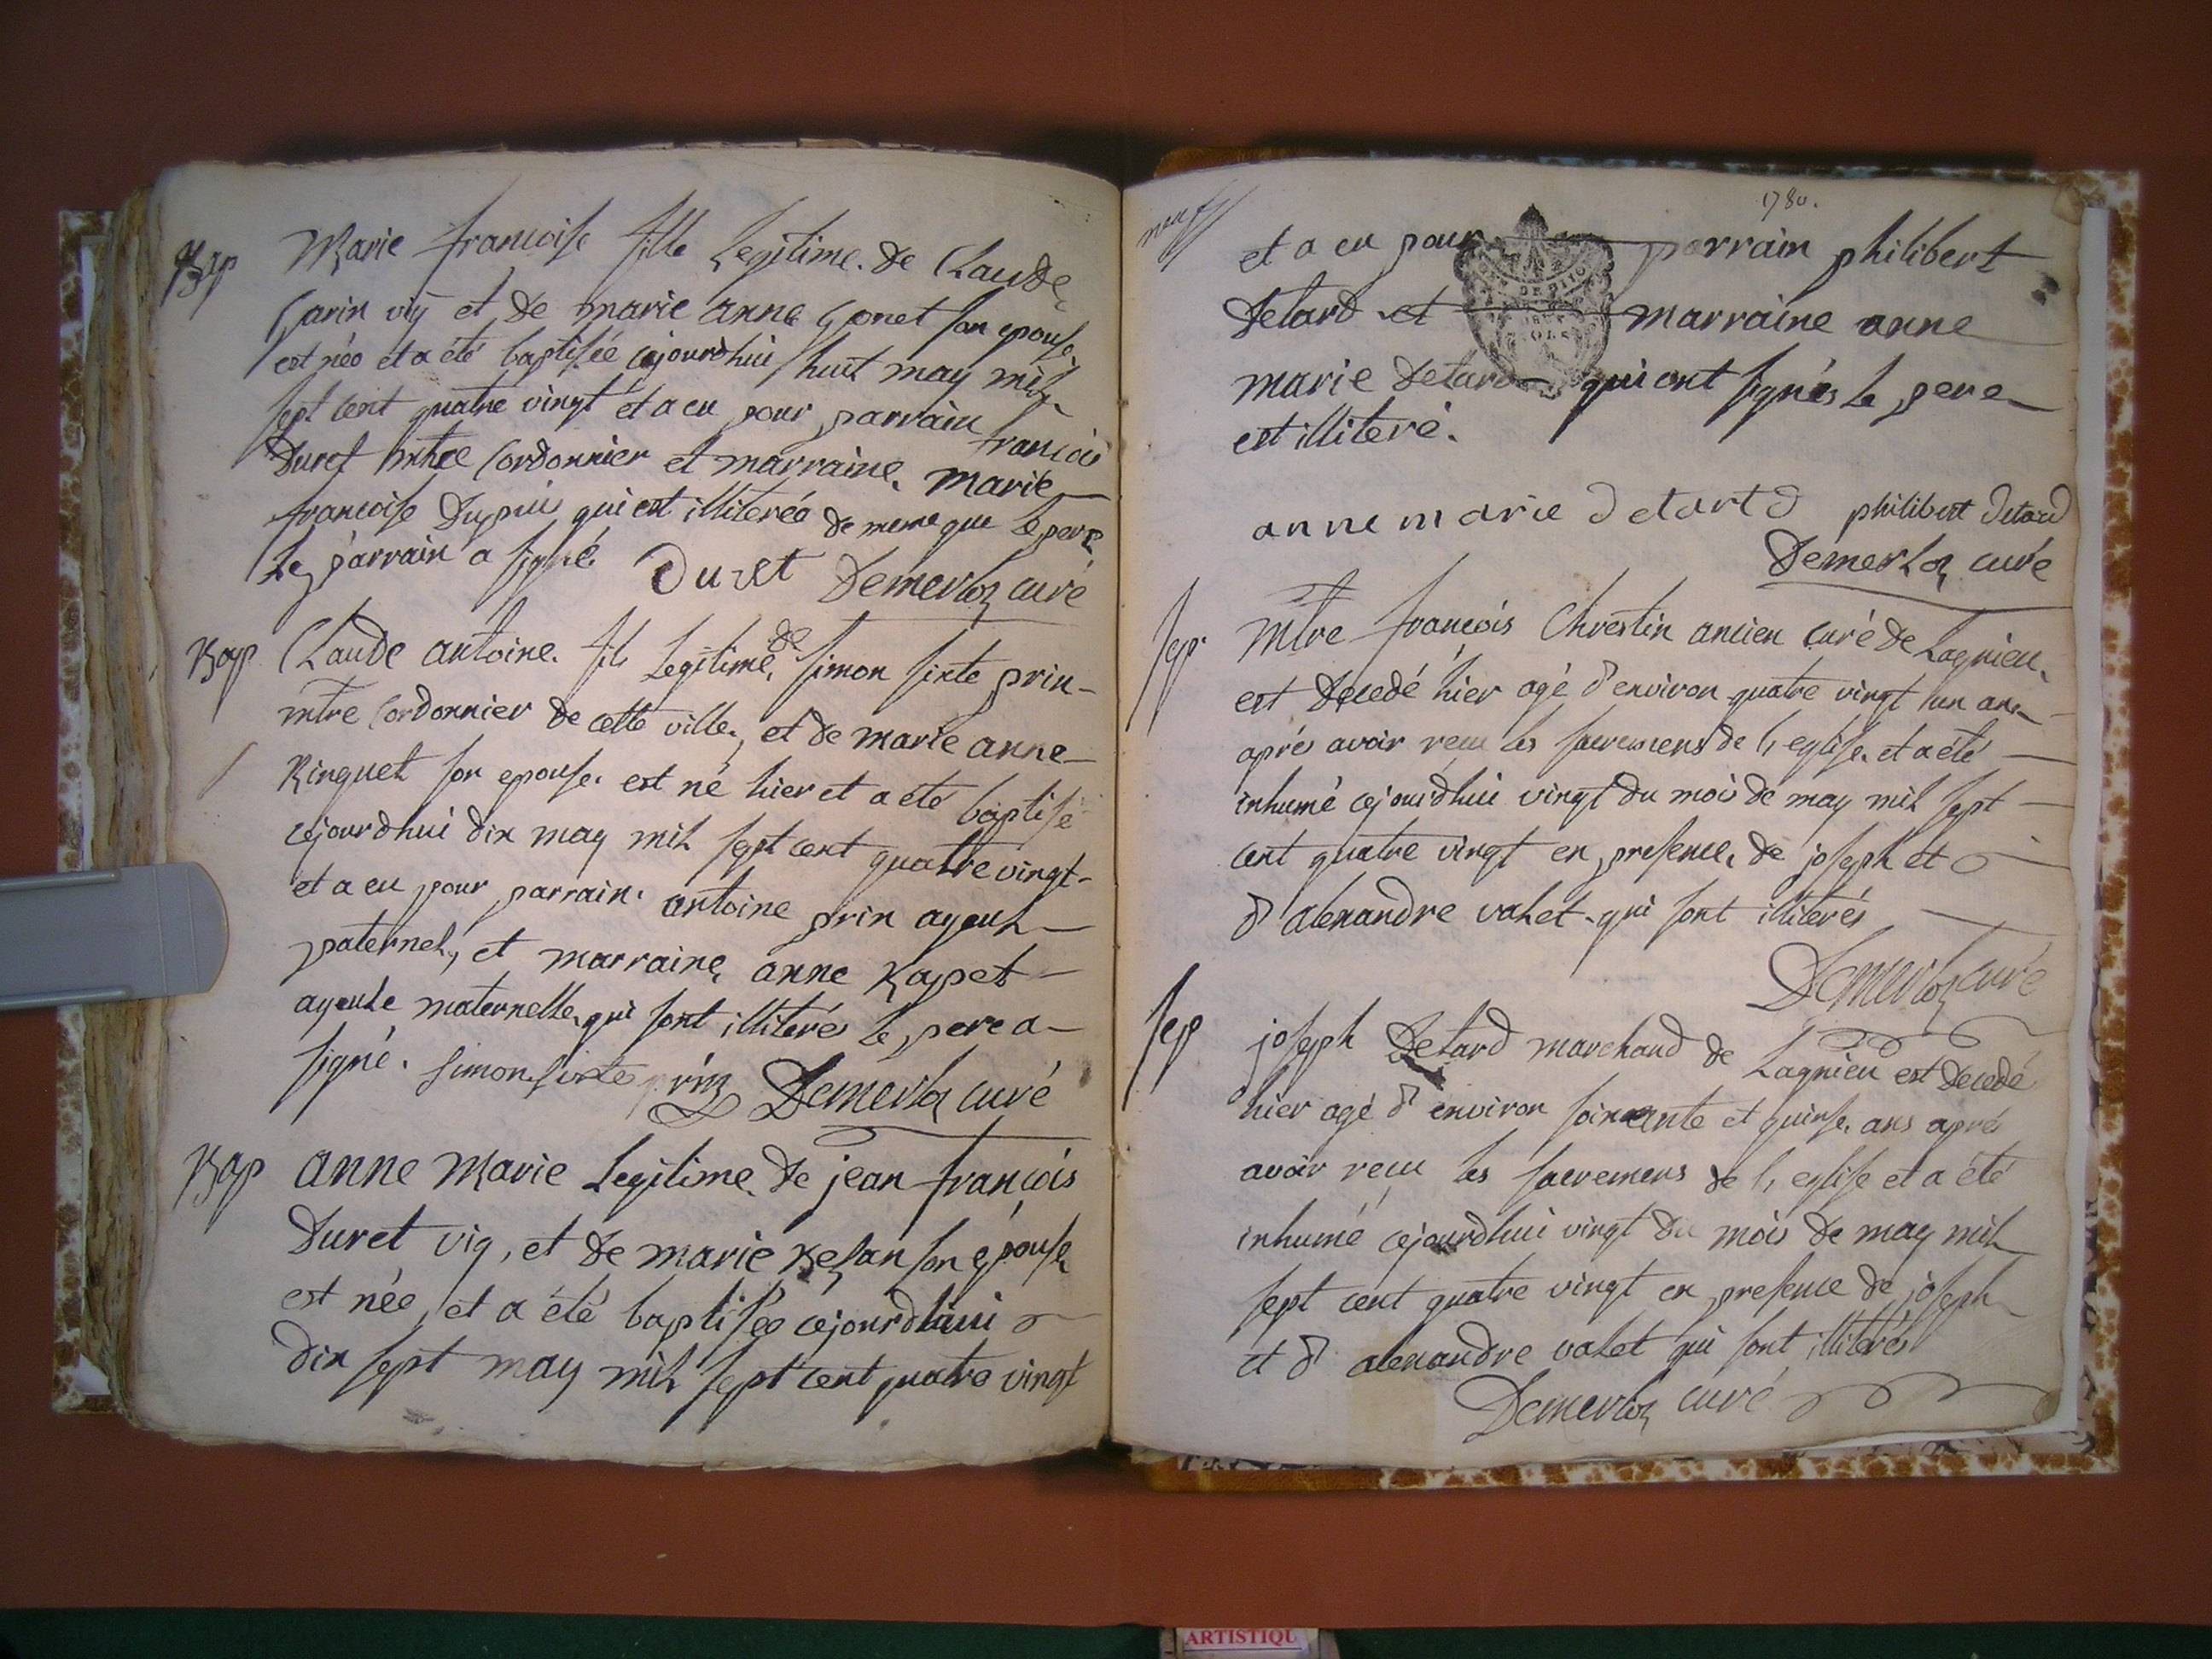 Bap
Marie francoise fille Legitime de Claude
Garin vig et de marie anne Gonet son epouse
est née et a été baptisée cejourdhui huit may mil
sept cent quatre vingt et a eu pour parrain francois
Duret mtre Cordonnier et marraine marie
francoise Dupuis qui est illiterée de meme que le pere
Le parrain a signé Duret Demerloz curé
Bap
Claude antoine fils Legitime de simon sixte prin
mtre Cordonnier de cette ville, et de marie anne
Ringuet son epouse est né hier et a été baptisé
cejourdhui dix may mil sept cent quatre vingt
et a eu pour parrain antoine prin ayeul
paternel, et marraine anne
ayeule maternelle qui sont illiterés le pere a
signé. simon sixte prin Demerloz curé
Bap
anne Marie Legitime de jean françois
Duret vig, et de marie son épouse
est née, et a été baptisée cejourdhui
dix sept may mil sept cent quatre vingt
neuf
1780.
et a eu pour parrain philibert
Detard et marraine anne
marie Detard qui ont signés le pere
est illiteré.
anne marie detartd philibert detard
Demerloz curé
sep
Mtre françois Chrestin ancien curé de Lagnieu
est decedé hier agé d'environ quatre vingt un ans
aprés avoir reçu les sacremens de l'eglise et a été
inhumé cejourdhui vingt du mois de may mil sept
cent quatre vingt en presence de joseph et
d'alexandre valet qui sont illiterés
Demerloz curé
sep
joseph Detard marchand de Lagnieu est decedé
hier agé d'environ soixante et quinse ans aprés
avoir reçu les sacremens de l'eglise et a été
inhumé cejourdhui vingt du mois de may mil
sept cent quatre vingt en presence de joseph
et d'alexandre valet qui sont illiterés
Demerloz curé
ARTISTIQU